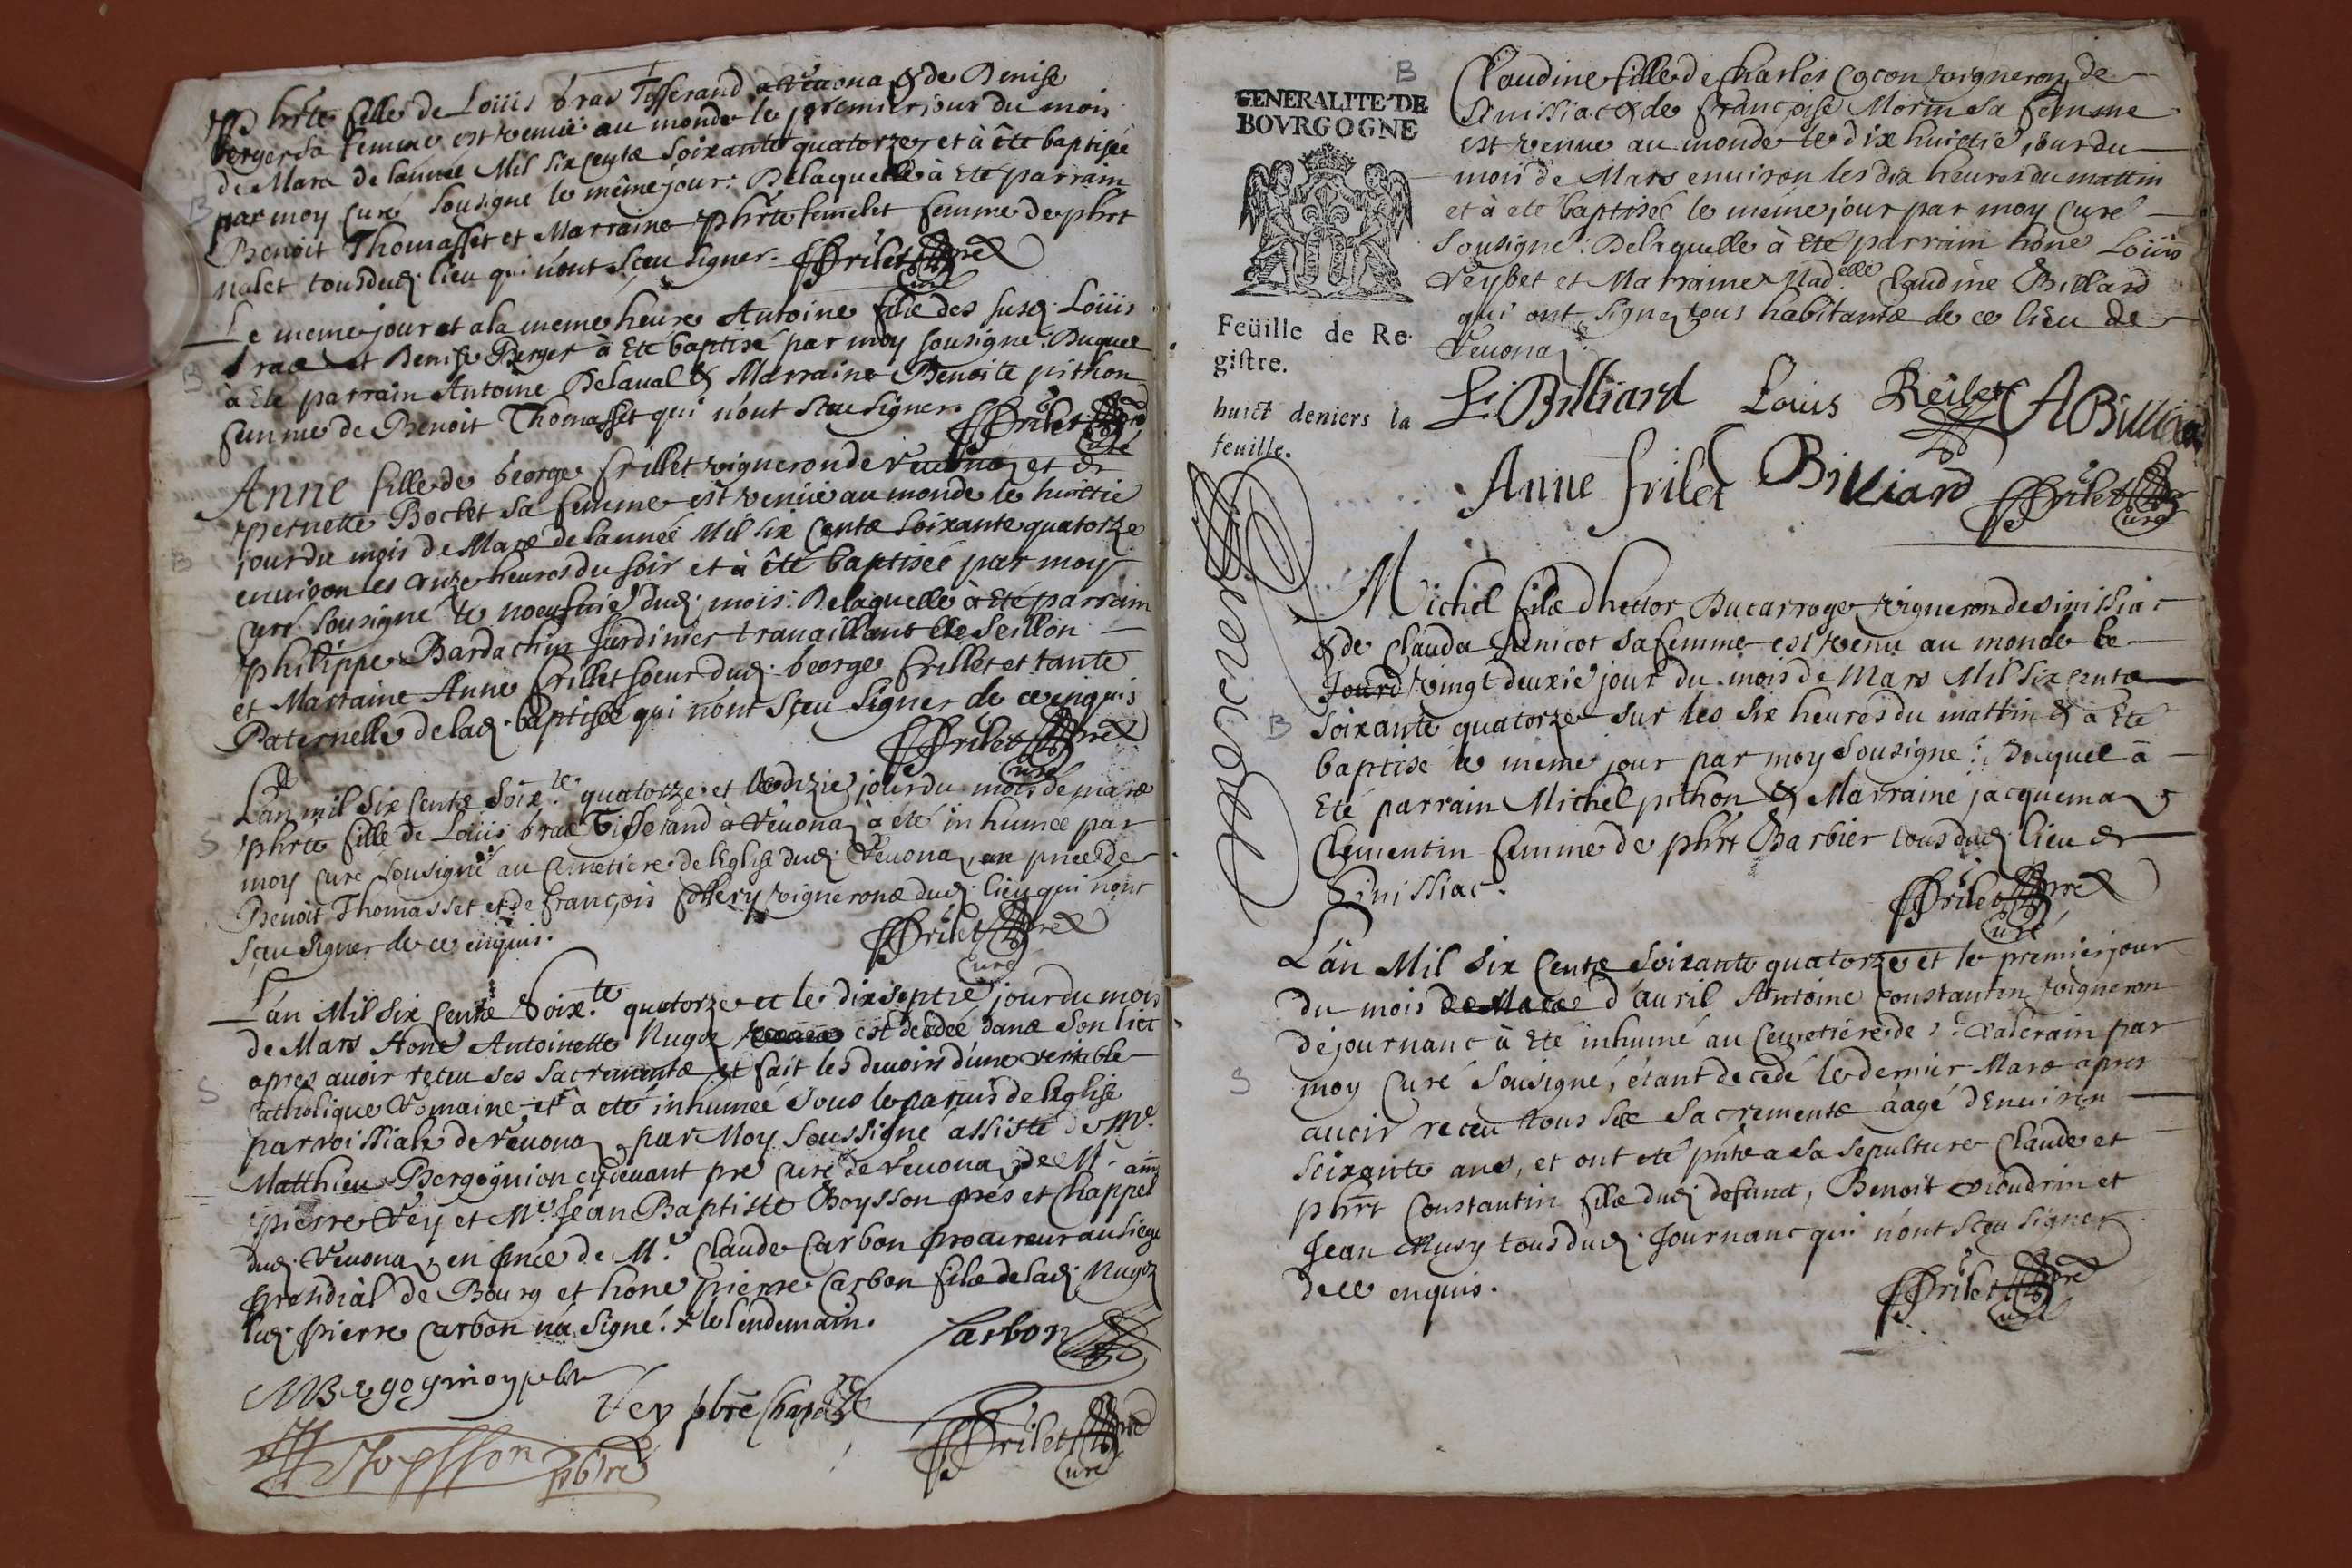 Phrte fille de Loüis brac Tisserand a Veuona & de Denise
berger sa femme est venuë au monde le premier jour du mois
de Mars de lannée Mil six centz soixante quatorze et à été baptiséé
B par moy Curé sousigné le même jour: Delaquelle à Eté parrain
Benoit Thomasset et Marraine Phrte femelet femme de phrt
nalet tous dud. lieu qui n'ont sceu signer. Frilet pre
Curé
Le meme jour et a la meme heure Antoine filz des susd. Loüis
B brac et Denise Berger à Eté baptisé par moy sousigné. Duquel
à Eté parrain Antoine Delaual & Marraine Benoite pithon
femme de Benoit Thomasset qui n'ont sceu signer. Frilet pre
Curé
Anne fille de George frillet vigneron de Veuona et de
Pernette Boclet sa femme est venüe au monde le huictié
B jour du mois de Marz de lannéé Mil six centz soixante quatorze
enuiron les onze heures du soir et à été baptiséé par moy
Curé sousigné le noeufuié dud. mois: Delaquelle à Eté parrain
Philippe Bardachin Jardinier trauaillant de Seillon
et Marraine Anne frillet soeur dud. George frillet et tante
Paternelle de lad. baptiséé qui n'ont sceu signer de ce enquis
Frilet pre
Curé
L'an mil six centz soix.te quatorze et le dizié jour du mois de marz
S phrte fille de Loüis brac Tisserand à Veuona à été inhumée par
moy Curé sousigné au Cemetiere de l'Eglise dud. Veuona, en pnce de
Benoit Thomasset et de François Collery vigneronz dud. lieu qui n'ont
sceu signer de ce enquis. Frilet pre
Curé
L'an Mil six centz Soix.te quatorze et le dix septié jour du mois
de Mars Hone Antoinette Nugoz est decedéé danz son lict
S apres auoir receu ses sacrementz et fait les deuoirs d'une veritable
catholique Romaine et à eté inhuméé sous le paruis de l'Eglise
parroissiale de Veuona par Moy Soussigné assisté de Mre
Matthieu Bergoignion cydeuant pre Curé de Veuona de M.
pierre Vey et Mre Jean Baptiste Boysson prés et Chappel
dud. Veuona, en pnce de M.e Claude Carbon procureur au siege
presidiâl de Bourg et hone pierre Carbon filz de lad. Nugoz
led. pierre Carbon n'a signé. + le lendemain. Carbon
MBergoynion pbre
Vey pbre Chap
Boysson pbre
Frilet pre
Curé
GENERALITE DE
BOVRGOGNE
Feüille de Re-
gistre.
huict deniers la
feuille.
B Claudine fille de Charles Cocon vigneron de
Sinissiac & de Françoise Morin sa femme
est venue au monde le dix huictié jour du
mois de Mars enuiron les dix heures du mattin
et à eté baptiséé le méme jour par moy Curé
Sousigné: Delaquelle à Eté parrain hone Loüis
Reybet et Marraine Mad.elle Claudine Billard
qui ont signez tous habitantz de ce lieu de
Veuona.
Billiard Louis Reibet A Billiard
Anne frilet Billiard Frilet pre
Curé
Michel filz d'hector Ducarroge vigneron de sinissiac
& de Clauda Janicot sa femme est venu au monde le
Jourd vingt deuxié jour du mois de Mars Mil six centz
B soixante quatorze sur les six heures du mattin & à Eté
baptisé le meme jour par moy Sousigné: Duquel à
Eté parrain Michel pithon & Marraine jacquema
Clementin femme de phrt Barbier tous dud. lieu de
Sinissiac.
Frilet pre
Curé
L'an Mil six centz soixante quatorze et le premier jour
du mois de Marz d'auril Antoine Constantin vigneron
de journanc à Eté inhumé au Cemetiére de st. valerain par
S moy Curé Sousigné, étant decedé le dernier Marz apres
auoir receu tous sez sacrementz aagé d'Enuiron
soixante ans, et ont eté pnts a sa sepulture Claude et
phrt Constantin filz dud. defunct, Benoit Moudrin et
Jean Musy tous dud. Journanc qui n'ont sceu signer
de ce enquis. Frilet pre
Curé